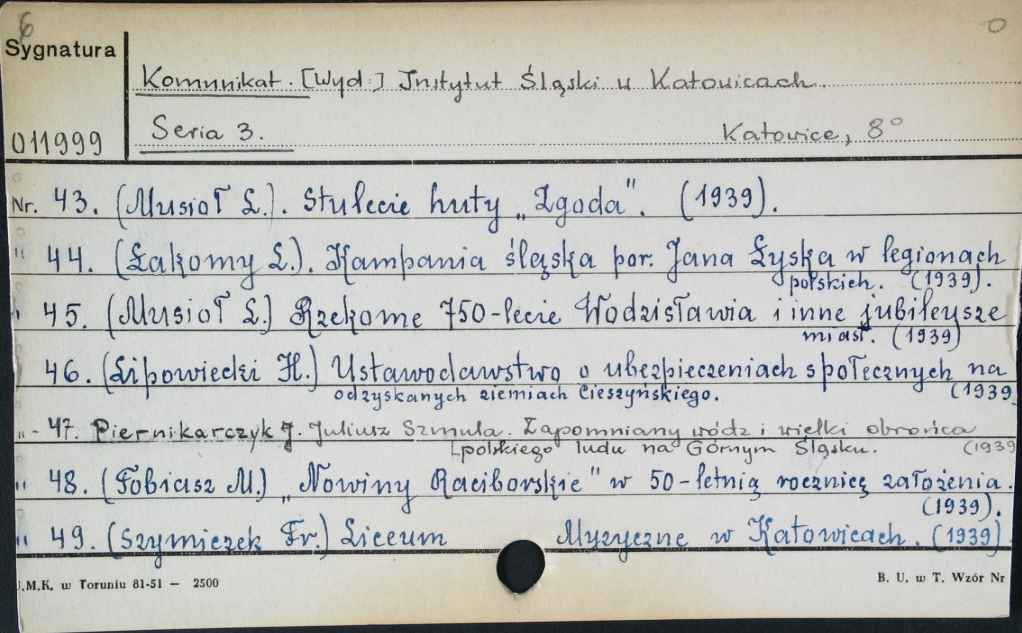 6
0
Sygnatura
Komunikat. [Wyd:] Instytut Śląski w Katowicach.
011999
Seria 3.
Katowice, 8°
Nr. 43. (Musioł L.). Stulecie huty „Zgoda". (1939).
" 44. (Łakomy L.). Kampania śląska por. Jana Łyska w legionach
polskich. (1939).
" 45. (Musioł L.) Rzekome 750-lecie Wodzisławia i inne jubileusze
miast. (1939)
46. (Lipowiecki H.) Ustawodawstwo o ubezpieczeniach społecznych na
odzyskanych ziemiach Cieszyńskiego. (1939
" - 47. Piernikarczyk J. Juliusz Szmula. Zapomniany wódz i wielki obrońca
[polskiego ludu na Górnym Śląsku. (1939
" 48. (Tobiasz M.) „Nowiny Raciborskie" w 50-letnią rocznicę założenia.
(1939).
" 49. (Szymiczek Fr.) Liceum Muzyczne w Katowicach. (1939)
U.M.K. w Toruniu 81-51 — 2500
B. U. w T. Wzór Nr